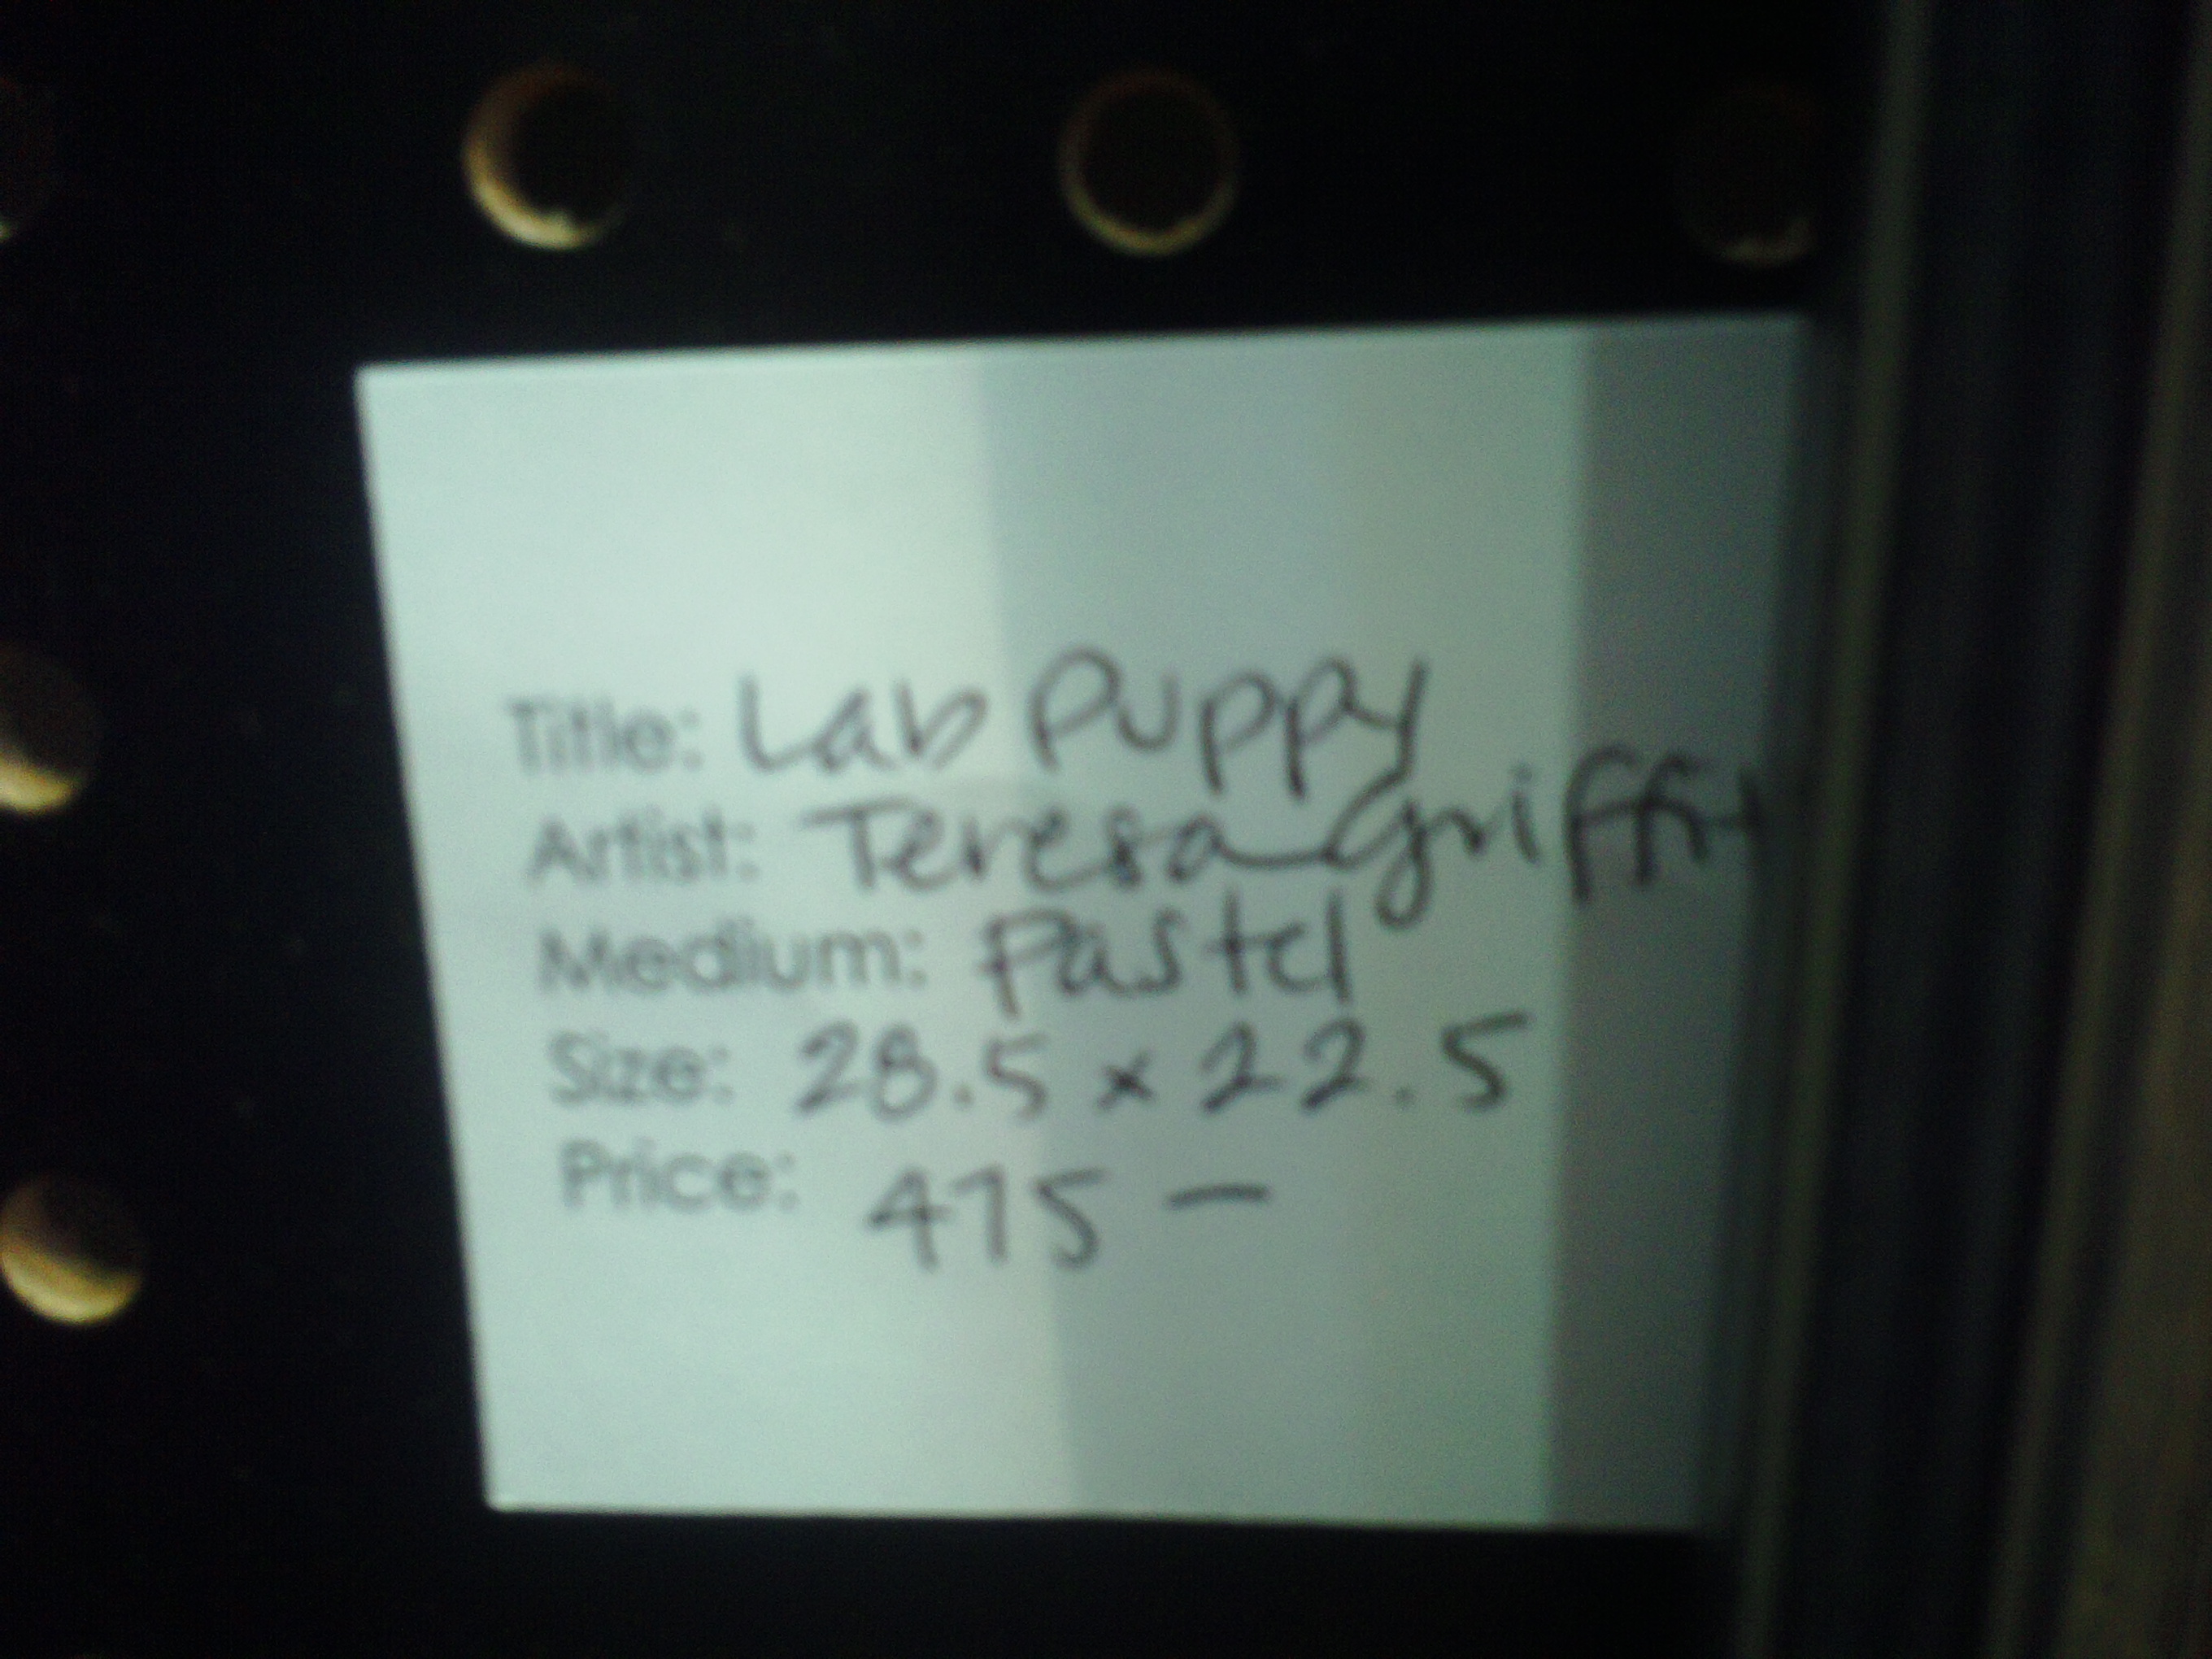 Title: Lab Puppy
Artist: Teresa Griffi
Medium: Pastel
Size: 28.5 x 22.5
Price: 475 —